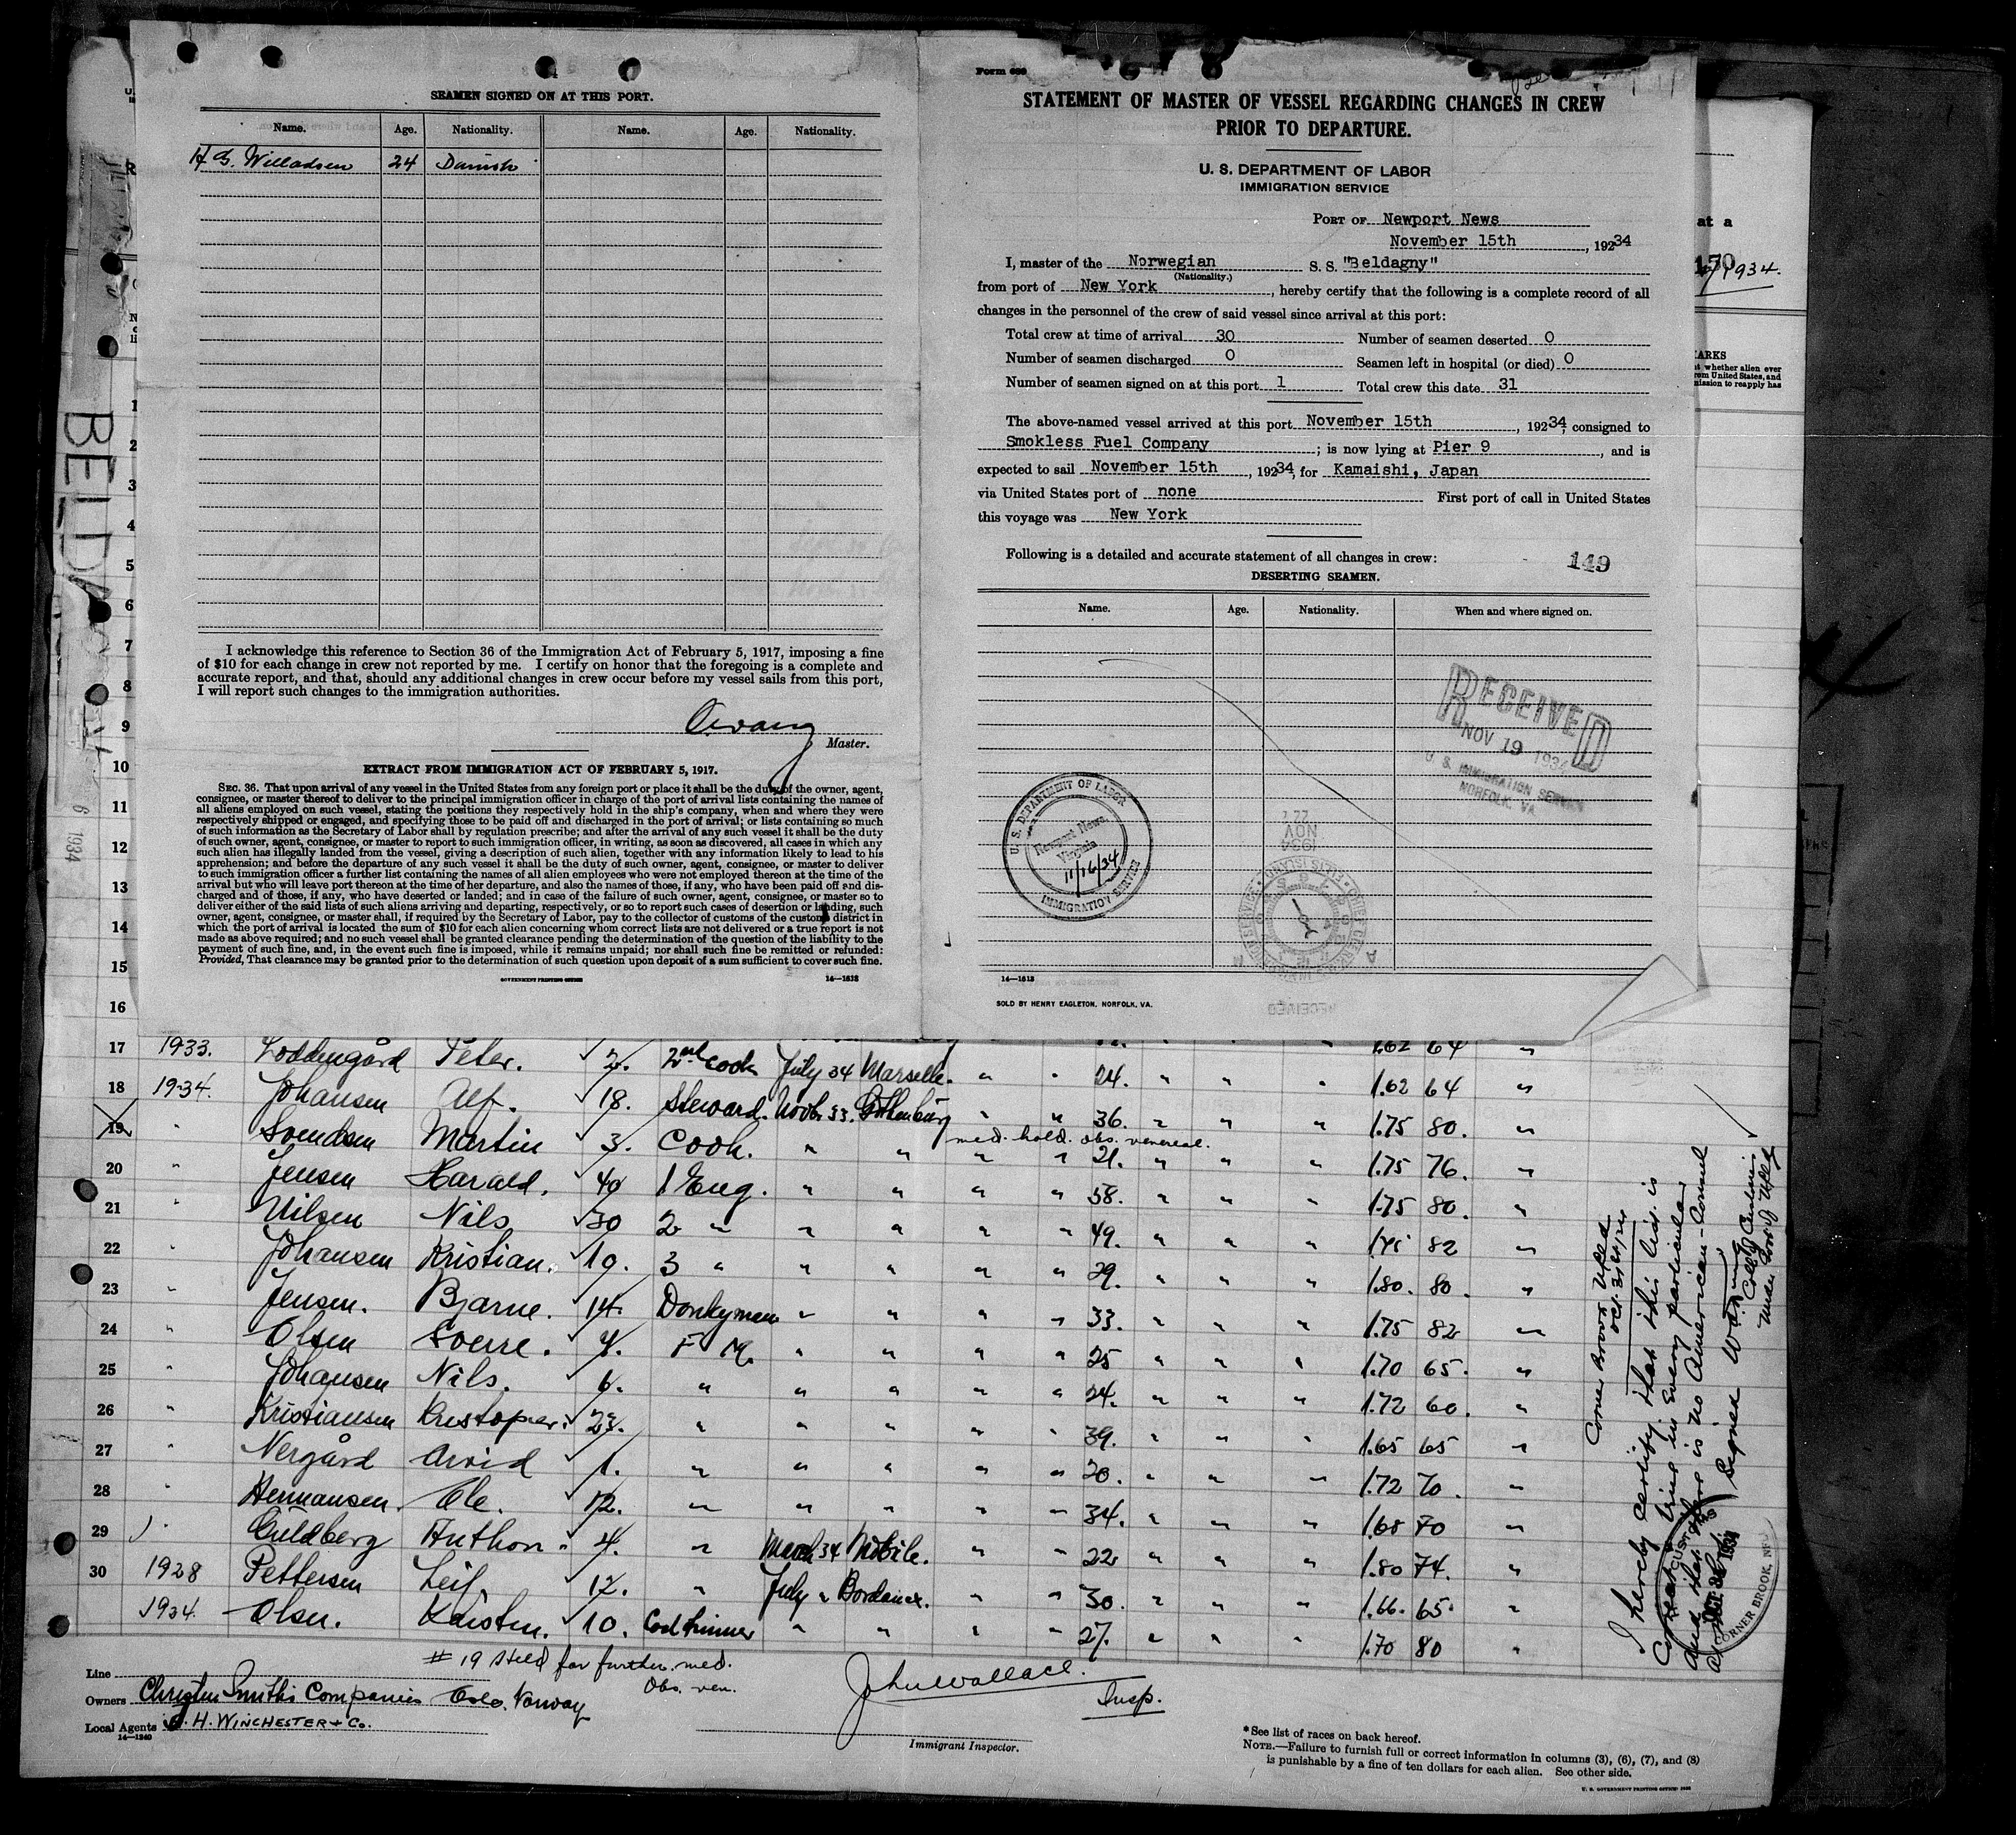 SEAMEN SIGNED ON AT THIS PORT.
Name. Age. Nationality. Name. Age. Nationality.
H. G. Willadsen 24 Danish
I acknowledge this reference to Section 36 of the Immigration Act of February 5, 1917, imposing a fine
of $10 for each change in crew not reported by me. I certify on honor that the foregoing is a complete and
accurate report, and that, should any additional changes in crew occur before my vessel sails from this port,
I will report such changes to the immigration authorities.
Master.
EXTRACT FROM IMMIGRATION ACT OF FEBRUARY 5, 1917.
SEC. 36. That upon arrival of any vessel in the United States from any foreign port or place it shall be the duty of the owner, agent,
consignee, or master thereof to deliver to the principal immigration officer in charge of the port of arrival lists containing the names of
all aliens employed on such vessel, stating the positions they respectively hold in the ship's company, when and where they were
respectively shipped or engaged, and specifying those to be paid off and discharged in the port of arrival; or lists containing so much
of such information as the Secretary of Labor shall by regulation prescribe; and after the arrival of any such vessel it shall be the duty
of such owner, agent, consignee, or master to report to such immigration officer, in writing, as soon as discovered, all cases in which any
such alien has illegally landed from the vessel, giving a description of such alien, together with any information likely to lead to his
apprehension; and before the departure of any such vessel it shall be the duty of such owner, agent, consignee, or master to deliver
to such immigration officer a further list containing the names of all alien employees who were not employed thereon at the time of the
arrival but who will leave port thereon at the time of her departure, and also the names of those, if any, who have been paid off and dis-
charged and of those, if any, who have deserted or landed; and in case of the failure of such owner, agent, consignee, or master so to
deliver either of the said lists of such aliens arriving and departing, respectively, or so to report such cases of desertion or landing, such
owner, agent, consignee, or master shall, if required by the Secretary of Labor, pay to the collector of customs of the customs district in
which the port of arrival is located the sum of $10 for each alien concerning whom correct lists are not delivered or a true report is not
made as above required; and no such vessel shall be granted clearance pending the determination of the question of the liability to the
payment of such fine, and, in the event such fine is imposed, while it remains unpaid; nor shall such fine be remitted or refunded:
Provided, That clearance may be granted prior to the determination of such question upon deposit of a sum sufficient to cover such fine.
GOVERNMENT PRINTING OFFICE 14—1613
Form 689
STATEMENT OF MASTER OF VESSEL REGARDING CHANGES IN CREW
PRIOR TO DEPARTURE.
U. S. DEPARTMENT OF LABOR
IMMIGRATION SERVICE
PORT OF Newport News
November 15th, 192 34
I, master of the Norwegian S. S. "Beldagny"
(Nationality.)
from port of New York, hereby certify that the following is a complete record of all
changes in the personnel of the crew of said vessel since arrival at this port:
Total crew at time of arrival 30 Number of seamen deserted 0
Number of seamen discharged 0 Seamen left in hospital (or died) 0
Number of seamen signed on at this port 1 Total crew this date 31
The above-named vessel arrived at this port November 15th, 192 34, consigned to
Smokless Fuel Company; is now lying at Pier 9, and is
expected to sail November 15th, 192 34, for Kamaishi, Japan
via United States port of none First port of call in United States
this voyage was New York
Following is a detailed and accurate statement of all changes in crew:
149
DESERTING SEAMEN.
Name. Age. Nationality. When and where signed on.
RECEIVED
NOV 19 1934
U. S. IMMIGRATION SERVICE
NORFOLK, VA.
U. S. DEPARTMENT OF LABOR
Newport News
Virginia
11/16/34
IMMIGRATION SERVICE
NOV
1934
14—1613
SOLD BY HENRY EAGLETON, NORFOLK, VA.
at a
150
1934.
ARKS
BELDA
6 1934
1
2
3
4
5
6
7
8
9
10
11
12
13
14
15
16
17 1933. Loddengård Peter. 2. 2nd Cook July 34 Marselle. " " 24. " " " 1.62 64 "
18 1934. Johansen Alf. 18. Steward. Novbr 33. Gothenburg " " 36. " " " 1.75 80. "
med. hold. obs. venereal.
19 " Svendsen Martin 3. Cook. " " " " 21. " " " 1.75 76. "
20 " Jensen Harald. 40 1 Eng. " " " " 58. " " " 1.75 80. "
21 " Nilsen Nils 30 2 " " " " " 49. " " " 82 "
22 " Johansen Kristian. 10. 3 " " " " " 29. " " " 1.80. 80. "
23 " Jensen. Bjarne. 14. Donkyman " " " " 33. " " " 1.75 82 "
24 " Olsen Sverre. 4. F M. " " " " 25 " " " 1.70 65. "
25 " Johansen Nils. 6. " " " " " 24. " " " 1.72 60. "
26 " Kristiansen Kristopher. 23. " " " " " 39. " " " 1.65 65 "
27 " Nergård Arvid 1. " " " " " 20. " " " 1.72 70. "
28 " Hermansen. Ole. 12. " " " " " 34. " " " 1.68 70 "
29 " Guldberg Anthon. 4. " March 34 Mobile. " " 22 " " " 1.80 74. "
30 1928 Pettersen Leif. 12. " July " Bordeaux. " " 30. " " " 1.66. 65. "
1934. Olsen. Karsten. 10. Coal trimmer " " " " 27. " " " 1.70 80 "
# 19 Held for further med.
Obs. ven.
Line
Owners Christen Smiths Companies Oslo. Norway
Local Agents H. WINCHESTER & Co.
14—1240
John Wallace.
Insp.
Immigrant Inspector.
*See list of races on back hereof.
NOTE.—Failure to furnish full or correct information in columns (3), (6), (7), and (8)
is punishable by a fine of ten dollars for each alien. See other side.
U. S. GOVERNMENT PRINTING OFFICE
Corner Brook Nfld
Oct. 31st/34
I hereby certify that this list is
Correct & true in Every particular
And that there is no American-Consul
Signed
CORNER BROOK, NFLD